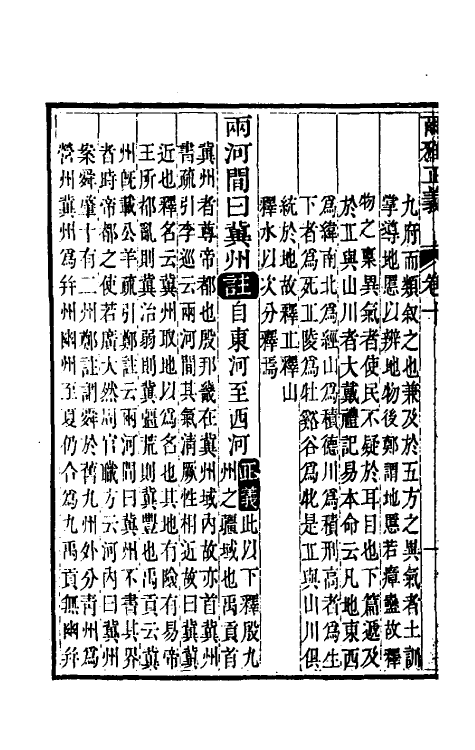 爾雅正義 卷十
九府而類叙之也兼及於五方之異氣者土訓
掌導地慝以辨地物後鄭謂地慝若瘴蠱故釋
物之稟異氣者使民不疑於耳目也下篇遞及
於丘與山川者大戴禮記易本命云凡地東西
爲緯南北爲經山爲積德川爲積刑高者爲生
下者爲死丘陵爲牡谿谷爲牝是丘與山川俱
統於地故釋丘釋山
釋水以次分釋焉
兩河間曰冀州 註 自東河至西河 正義 此以下釋殷九
州之疆域也禹貢首
冀州者尊帝都也殷那畿在冀州域内故亦首冀州
書疏引李巡云兩河間其氣清厥性相近故曰冀冀
近也釋名云冀州取地以爲名也其地有險有易帝
王所都亂則冀治弱則冀彊荒則冀豐也禹貢云冀
州既載公羊疏引鄭註云兩河間曰冀州不書其界
者時帝都之使若廣大然周官職方云河内曰冀州
案舜肇十有二州鄭註謂舜於舊九州外分靑州爲
營州冀州爲幷州幽州至夏仍合爲九禹貢無幽幷